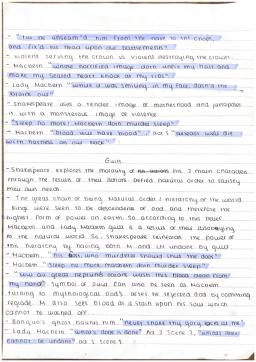 - "Till he unseam'd him from the nave to th' chops,
and fix'd his head upon our battlements"
- Violent serving the crown vs violent destroying the crown.
- Macbeth "whose horrid image doth unfix my hair and
make my seated heart knock at my ribs"
- Lady Macbeth "while it was smiling in my face, dash'd the
brains out"
- Shakespeare uses a tender image of motherhood and juxtaposes
it with a monstrous image of violence
- "Sleep no more! Macbeth doth murder sleep"
- Macbeth "Blood will have blood", Act 5 "at least we'll die
with harness on our back"
Guilt
- Shakespeare explores the morality of his 2 main characters
through the issues of their actions. Defied natural order to satisfy
their own needs.
- The great chain of being Natural order / hierarchy of the world
Kings were seen to be descendants of God and therefore the
highest form of power on Earth. So, according to this belief
Macbeth and Lady Macbeth guilt is a result of their disrupting
to the natural world. So, Shakespeare reinforces the power of
this hierarchy by having both M and LM undone by guilt.
- Macbeth "
- Macbeth "Sleep no more, Macbeth doth murder sleep"
- "Will all great neptune's ocean wash this blood clean from
my hand" Symbol of guilt. Can also be seen as Macbeth
turning to mythological gods, after he rejected God by commiting
regicide. M also sees blood as a stain upon his soul which
cannot be washed off
- Banquo's ghost haunts him "never shake thy gory locks at me"
- Lady Macbeth "what's done is done" Act 3 Scene 2, "what's done
cannot be undone" Act 5 scene 1